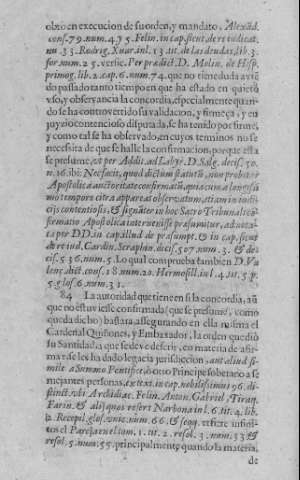 obrò en execucion de su orden, y mandato, Alexãd.
cons. 79. num. 4. y 5. Felin. in cap. sicut, de re iudicat.
nu. 33. Rodrig. Xuar. in l. 13. tit. de las deudas, lib. 3.
for. num. 25. versic. Per prædict. D. Molin. de Hisp.
primog. lib. 2. cap. 6. num. 74. que no tiene duda aviẽ
do passado tanto tiempo en que ha estado en quieto
vso, y observancia la concordia, especialmente quan-
do se ha controvertido su validacion, y firmeça, y en
juyzio contencioso disputada, se ha tenido por firme,
y como tal se ha observado, en cuyos terminos no se
necessita de que se halle la confirmacion, porque esta
se presume, vt per Addit. ad D. Salg. decis. 50.
n. 16. ibi: Nec facit, quod dictum statutũ, non probetur
Apostolica auctoritate confirmatũ, quia cum à longissi
mo tempore citra appareat observatum, etiam in iudi-
cijs contentiosis, & signãter in hoc Sacro Tribunali cõ
firmatio Apostolica intervenisse præsumitur, ad nota-
ta per DD. in cap. illud de præsumpt. & in cap. sicut
de re iud. Cardin. Seraphin. decis. 507. num. 3. & de-
cis. 536. num. 5. Lo qual comprueba tambien D. Va
lenç. dict. cons. 18. num. 20. Hermosill. in l. 4. tit. 5. p.
5. glos. 6. num. 31.
84 La autoridad que tiene en si la concordia, aũ
que no estuviesse confirmada (que se presume, como
queda dicho) bastara, assegurando en ella misma el
Cardenal Quiñones, y Embaxador, la orden que dió
su Santidad, a que se deve deferir, en materia de afir-
mar se les ha dado legacia jurisdiccion, aut aliud si-
mile à Summo Pontifice, ò otro Principe soberano a se
mejantes personas, ex text. in cap. nobilissimus 96. di-
stinct. vbi Archidiac. Felin. Anton. Gabriel, Tiraq.
Farin. & alij quos refert Narbona in l. 6. tit. 4. lib.
2. Recopil. glos. vnic. num. 66. & seqq. refiere infini-
tos el Pareja en el tom. 1. tit. 2. resol. 3. num. 53 &
resol. 5. num. 55. principalmente quando la materia,
de